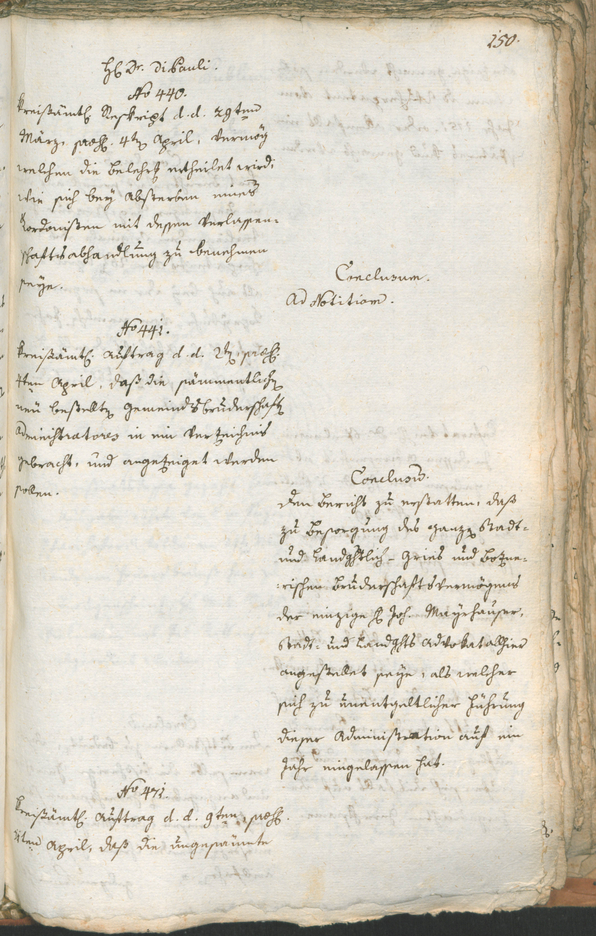 150.
H: Dr. Di Pauli.
No 440.
Kreißämtl: Reskript d. d. 29ten
März, pręs: 4ten April, vermög
welchen die Belehrg ertheilet wird,
wie sich bey Absterben eines
Kordonisten mit dessen Verlassen-
schaftsabhandlung zu benehmen
seye.
Conclusum.
Ad Notitiam.
No 441.
Kreißämtl: Auftrag d. d. 2ten, pręs:
4ten April, daß die sämmentlichen
neu bestellten Gemeinds Bruderschafts
Administratores in ein Verzeichnis
gebracht, und angezeiget werden
sollen.
Conclusum.
Den Bericht zu erstatten, daß
zu Besorgung des ganzen Stadt-
und Landghtlich- Gries und Bozne-
rischen Bruderschaftsvermögens
der einzige H Joh. Mayrhauser,
Stadt- und Landghts Advokat allhier
angestellet seye, als welcher
sich zu unentgeltlicher Führung
dieser Administration auf ein
Jahr eingelassen hat.
No 471.
Kreißämtl: Auftrag d. d. 9ten, pręs:
April, daß die ungesäumte